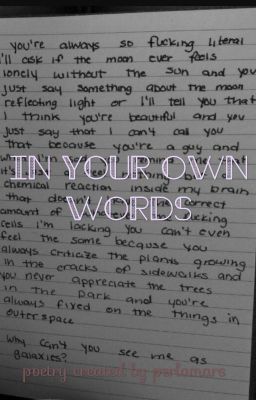 you're always so fucking literal
I'll ask if the moon ever feels
lonely without the sun and you
just say something about the moon
reflecting light or I'll tell you that
I think you're beautiful and you
just say that I can't call you
that because you're a guy and
IN YOUR OWN
chemical reaction inside my brain
that correct
WORDS
amount of
cells I'm lacking you can't even
feel the same because you
always criticize the plants growing
in the cracks of sidewalks and
you never appreciate the trees
in the park and you're
always fixed on the things in
outerspace
why can't you see me as
galaxies?
poetry created by